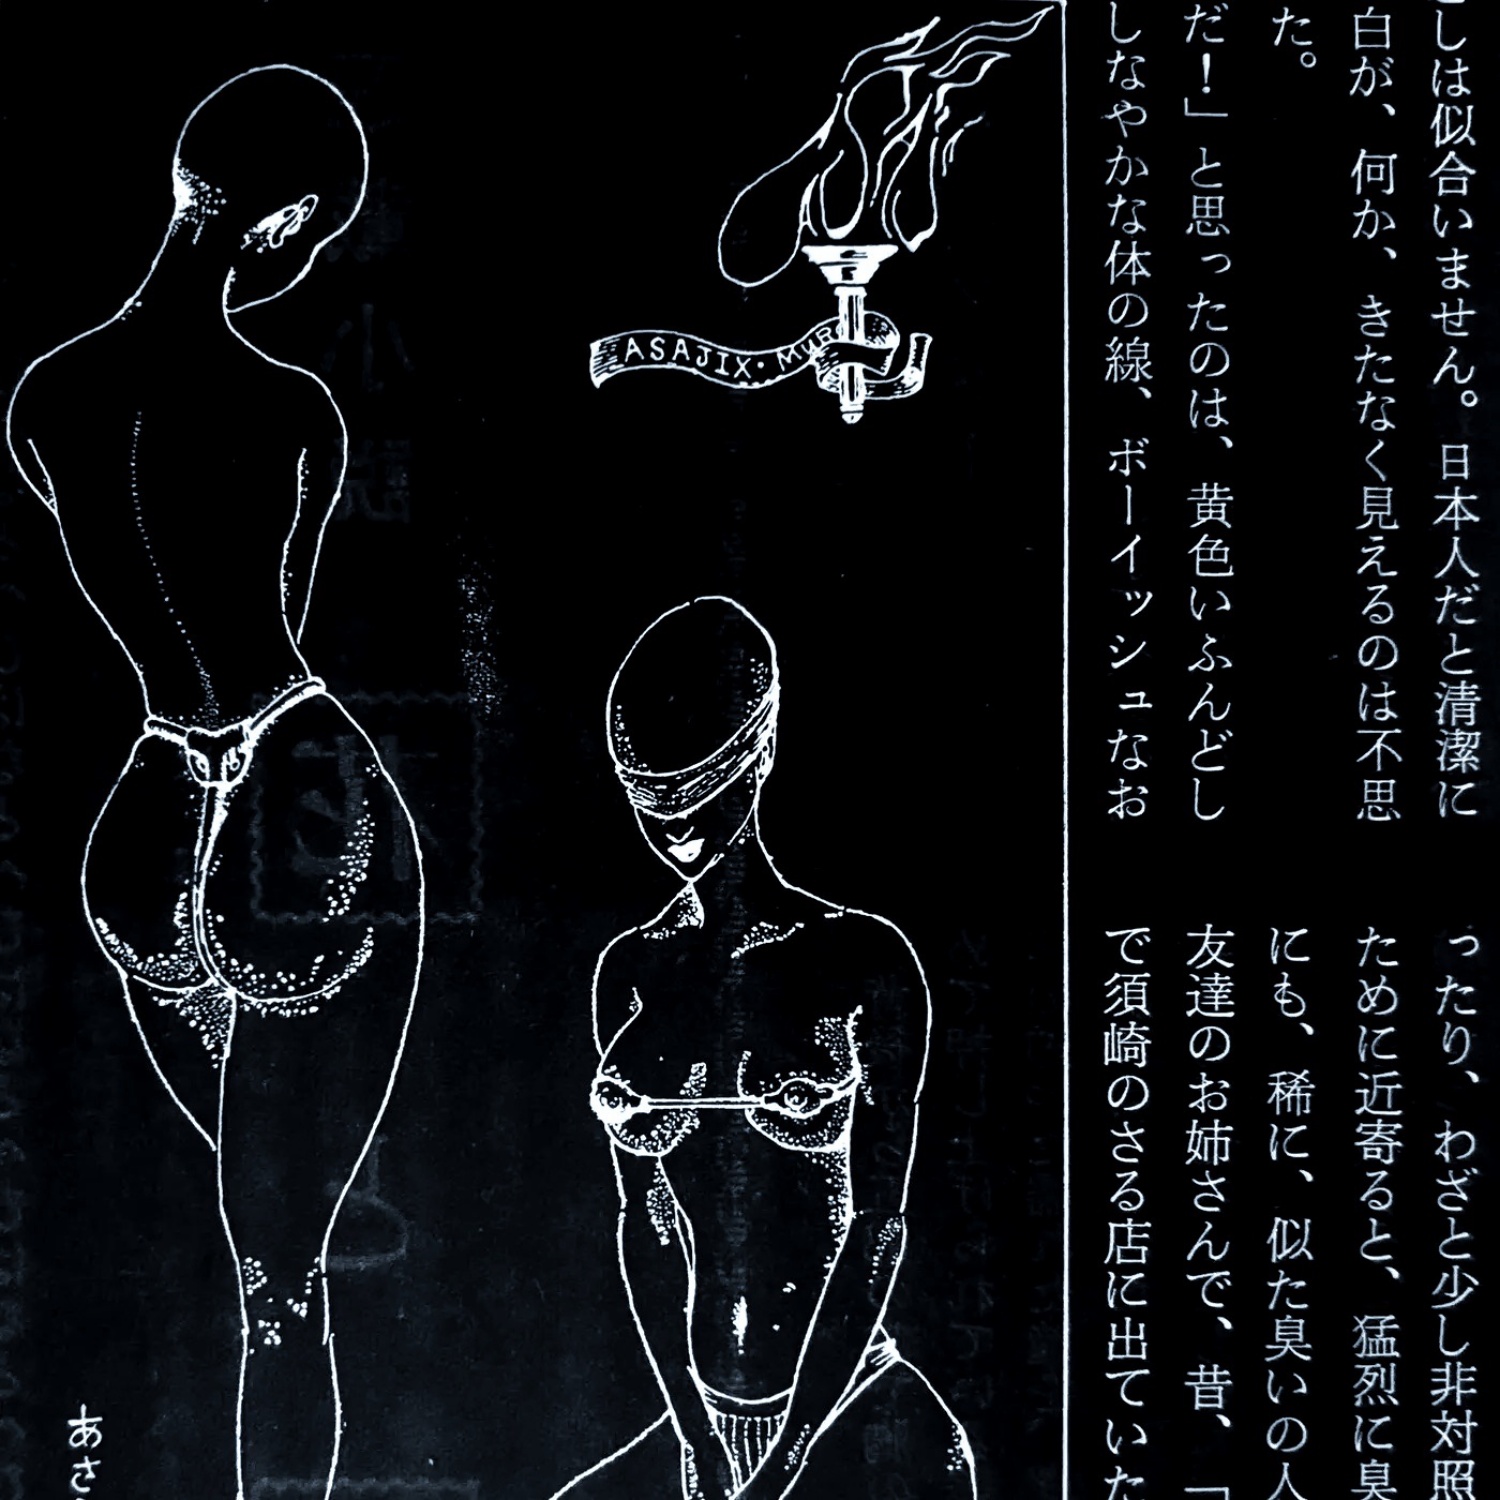 しは似合いません。日本人だと清潔に
白が、何か、きたなく見えるのは不思
た。
だ！」と思ったのは、黄色いふんどし
しなやかな体の線、ボーイッシュなお
ったり、わざと少し非対照
ために近寄ると、猛烈に臭
にも、稀に、似た臭いの人
友達のお姉さんで、昔、「
で須崎のさる店に出ていた
ASAJIX・MUR
あさ